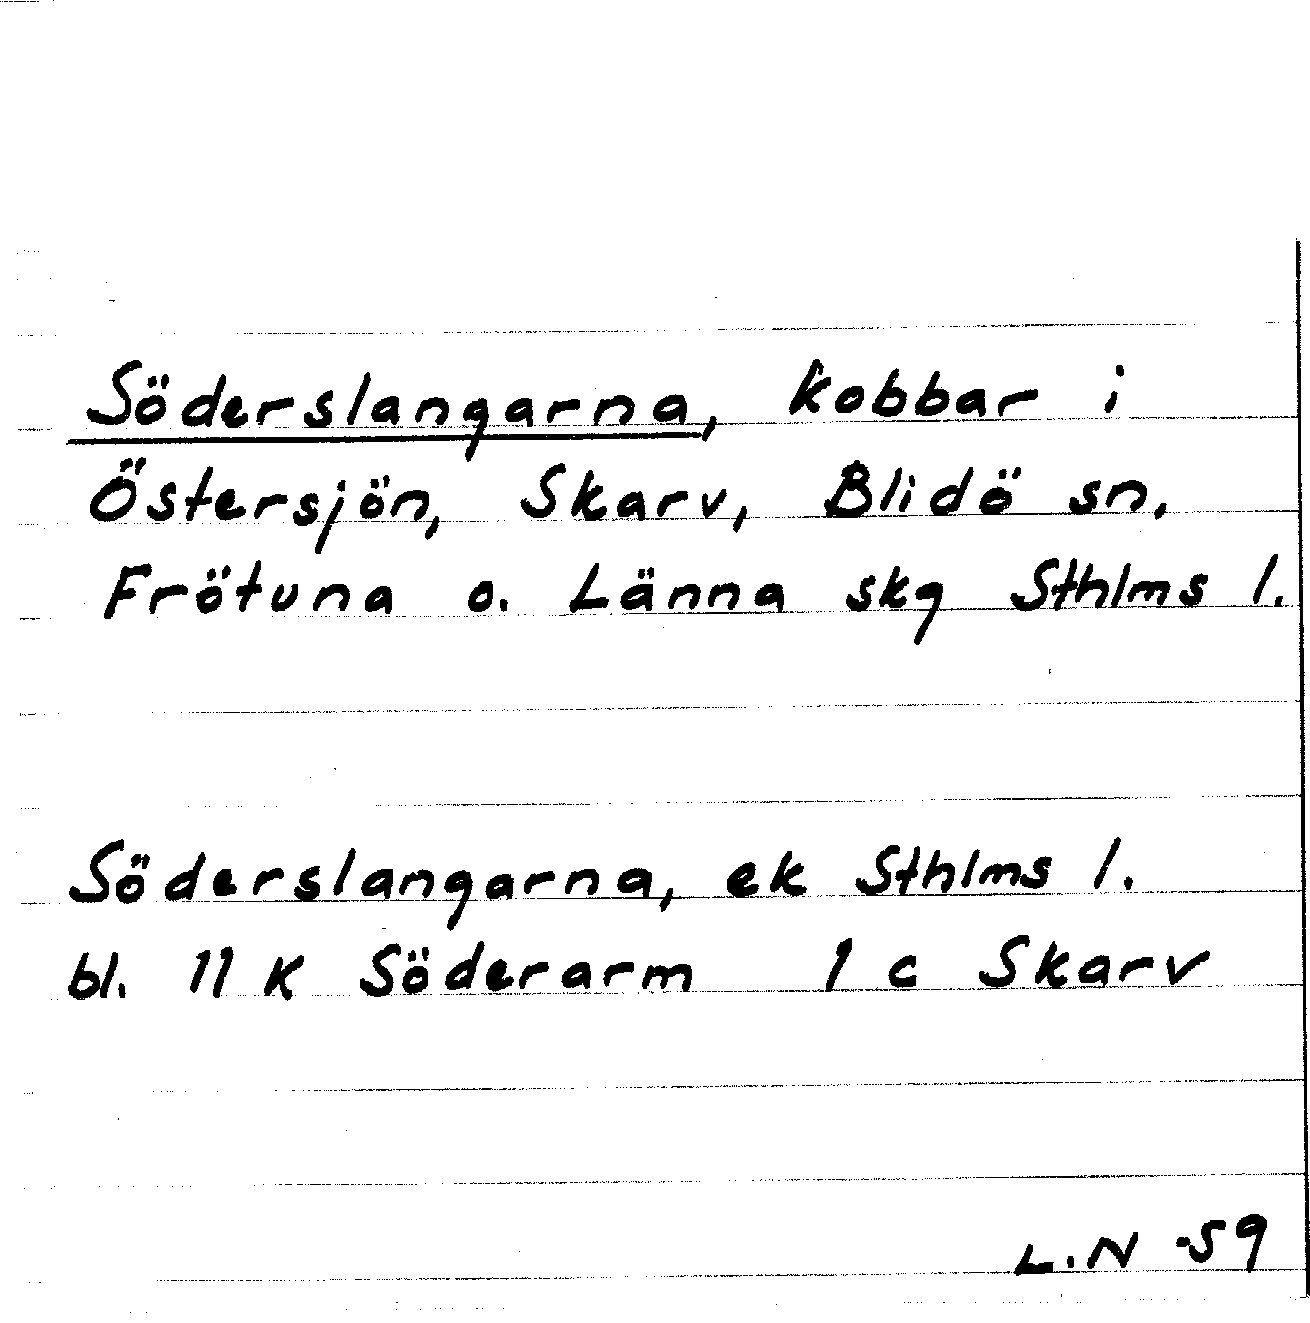 Söderslangarna, kobbar i
Östersjön, Skarv, Blidö sn,
Frötuna o. Länna skg Sthlms l.
Söderslangarna, ek Sthlms l.
bl. 11 K Söderarm 1 c Skarv
L.N -59